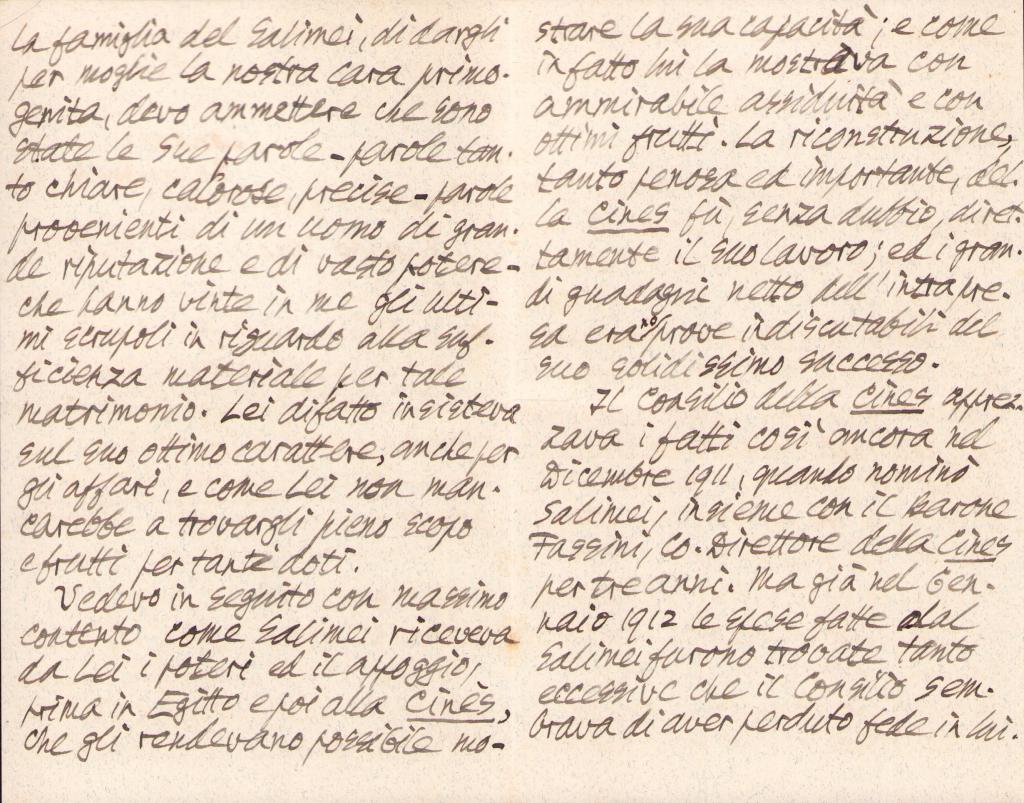 la famiglia del Salimei, di dargli
per moglie la nostra cara primo-
genita, devo ammettere che sono
state le sue parole - parole tan-
to chiare, calorose, precise - parole
provenienti di un uomo di gran-
de riputazione e di vasto potere -
che hanno vinte in me gli ulti-
mi scrupoli in riguardo alla suf-
ficienza materiale per tale
matrimonio. Lei difatto insisteva
sul suo ottimo carattere, anche per
gli affari, e come Lei non man-
carebbe a trovargli pieno scopo
e frutti per tante doti.
Vedevo in seguito con massimo
contento come Salimei riceveva
da Lei i poteri ed il appoggio,
prima in Egitto e poi alla Cines,
che gli rendevano possibile mo-
strare la sua capacità; e come
infatto lui la mostrava con
ammirabile assiduità e con
ottimi frutti. La riconstruzione,
tanto penosa ed importante, del-
la Cines fù, senza dubbio, diret-
tamente il suo lavoro; ed i gran-
di guadagni netto dell'intrapre-
sa erano prove indiscutabili del
suo solidissimo successo.
Il Consilio della Cines apprez-
zava i fatti così ancora nel
Dicembre 1911, quando nominò
Salimei, insieme con il Barone
Fassini, Co-Direttore della Cines
per tre anni. Ma già nel Gen-
naio 1912 le spese fatte dal
Salimei furono trovate tanto
eccessive che il Consilio sem-
brava di aver perduto fede in lui.